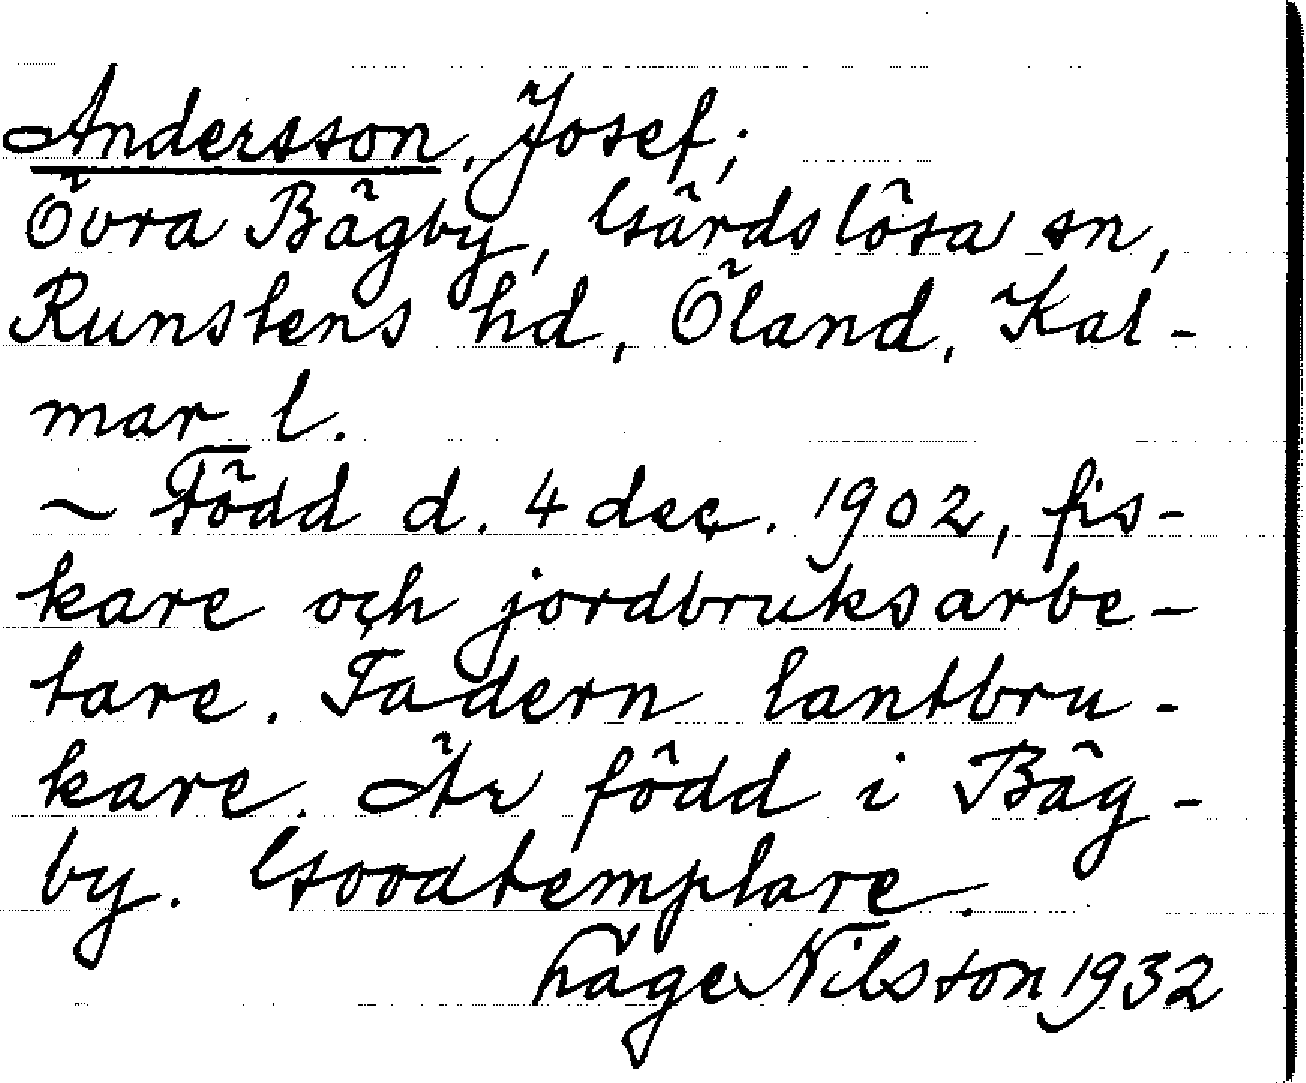 Andersson, Josef;
Övra Bägby, Gärdslösa sn,
Runstens hd, Öland, Kal-
mar l.
~ Född d. 4 dec. 1902, fis-
kare och jordbruksarbe-
tare. Fadern lantbru-
kare. Är född i Bäg-
by. Goodtemplare.
Åge Nilsson 1932